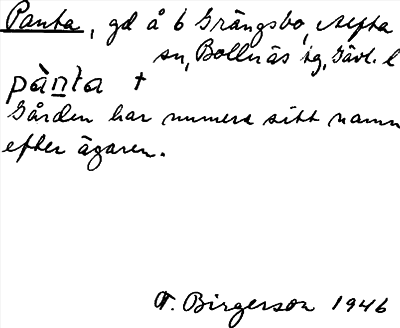 Panta, gd å 6 Grängsbo, Alfta
sn, Bollnäs tg, Gävl. l
pàn̲ta †
Gården har numera sitt namn
efter ägaren.
T. Birgerson 1946